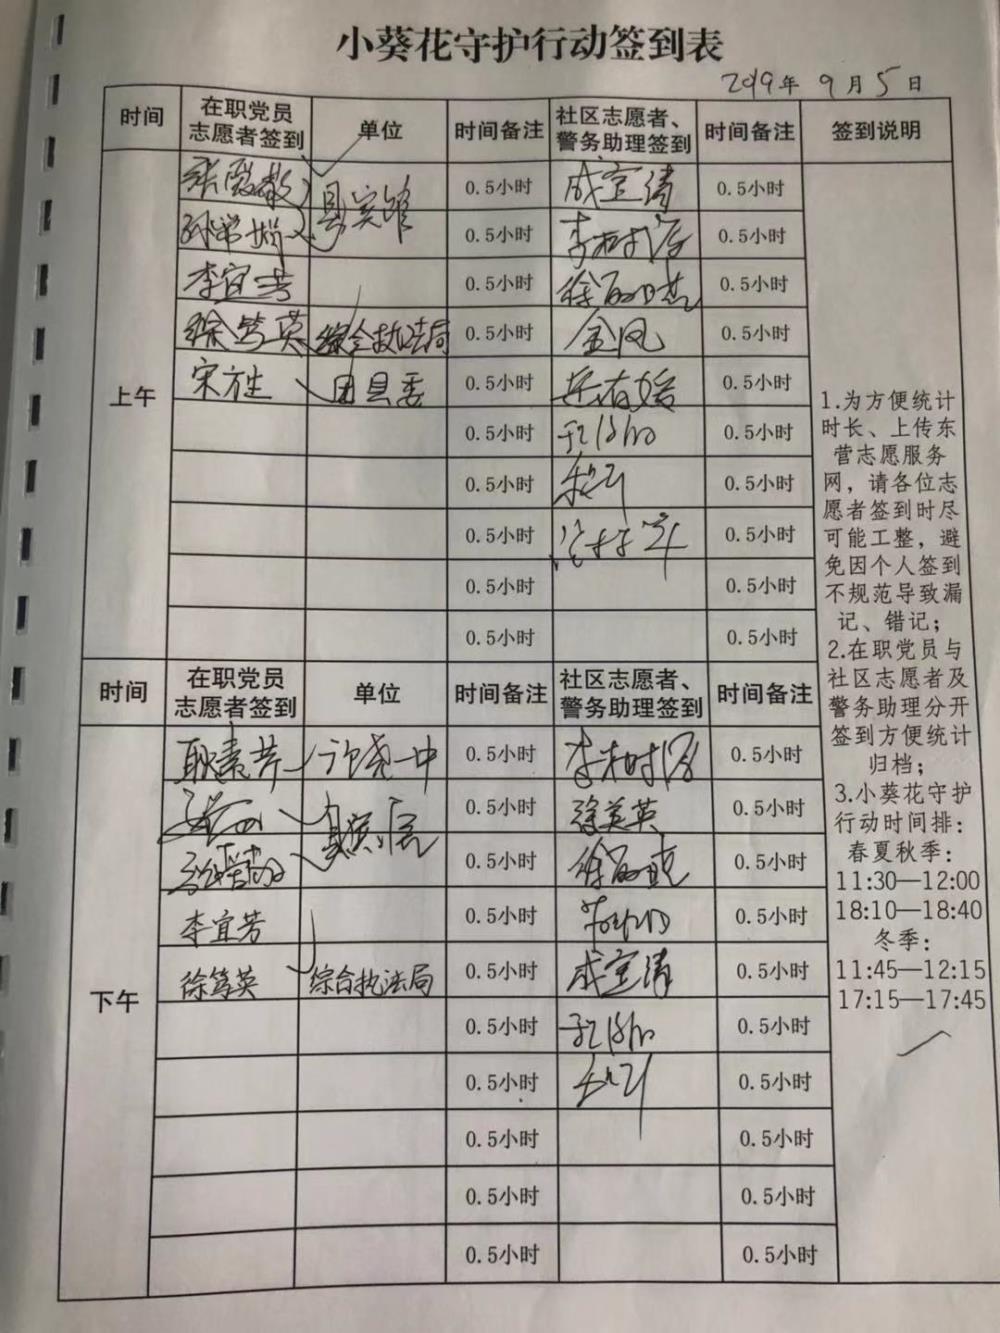 小葵花守护行动签到表
2019年 9月5日
时间 在职党员志愿者签到 单位 时间备注 社区志愿者、警务助理签到 时间备注 签到说明
上午
0.5小时 成宝清 0.5小时
0.5小时 0.5小时
李宜芳 0.5小时 0.5小时
徐笃英 综合执法局 0.5小时 金凤 0.5小时
宋方生 团县委 0.5小时 0.5小时
0.5小时 0.5小时
0.5小时 0.5小时
0.5小时 0.5小时
0.5小时 0.5小时
0.5小时 0.5小时
时间 在职党员志愿者签到 单位 时间备注 社区志愿者、警务助理签到 时间备注
下午
耿素芳 一中 0.5小时 0.5小时
0.5小时 徐美英 0.5小时
0.5小时 0.5小时
李宜芳 0.5小时 0.5小时
徐笃英 综合执法局 0.5小时 成宝清 0.5小时
0.5小时 0.5小时
0.5小时 0.5小时
0.5小时 0.5小时
0.5小时 0.5小时
0.5小时 0.5小时
1.为方便统计
时长、上传东
营志愿服务
网，请各位志
愿者签到时尽
可能工整，避
免因个人签到
不规范导致漏
记、错记；
2.在职党员与
社区志愿者及
警务助理分开
签到方便统计
归档；
3.小葵花守护
行动时间排：
春夏秋季：
11:30—12:00
18:10—18:40
冬季：
11:45—12:15
17:15—17:45